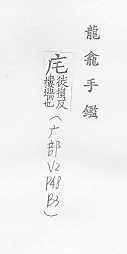 龍龕手鑑
庉徒損反樓墻也(广部V2P48B3)